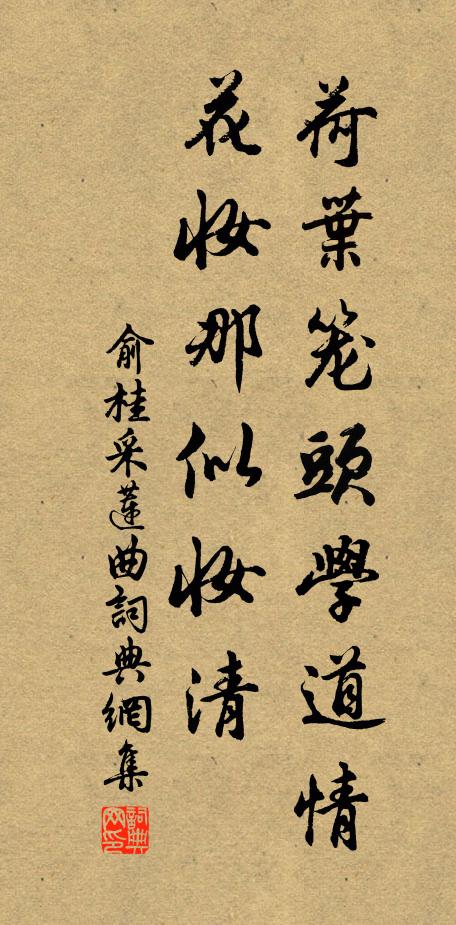 荷葉笼頭學道情
花妝那似妝清
俞桂采蓮曲詞典網集
詞典网印